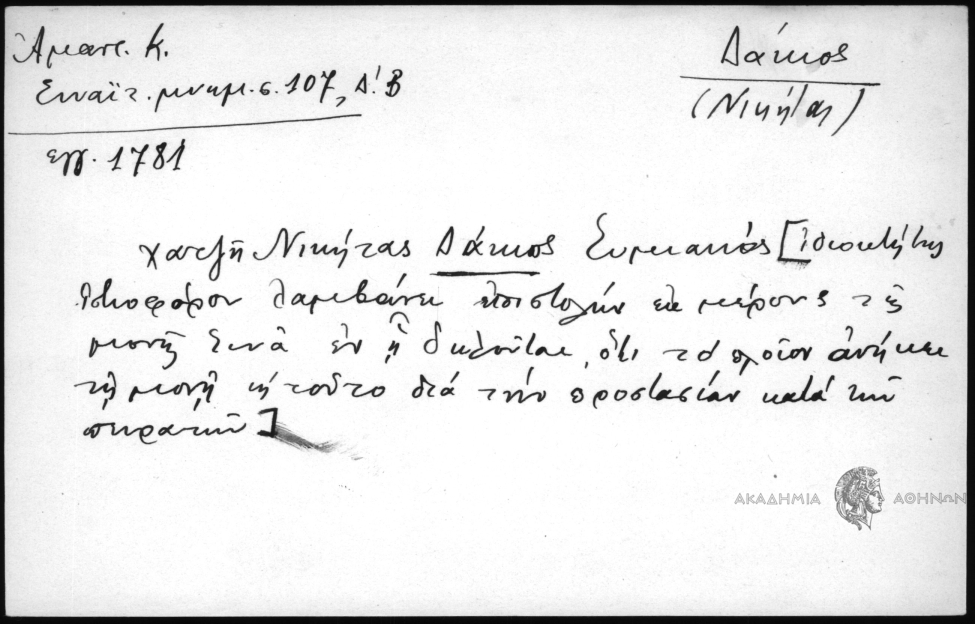 Ἀμαντ. Κ.
Σιναϊτ. μνημ. σ. 107, Δ΄. Β
ἔγγ. 1781
Δάκκος
(Νικήτας)
χατζῆ Νικήτας Δάκκος Συμιακός [ἰδιοκτήτης
ἱστιοφόρου λαμβάνει ἐπιστολήν ἐκ μέρους τῆς
μονῆς Σινᾶ ἐν ᾗ δηλοῦται ὅτι τό πλοῖον ἀνήκει
τῇ μονῇ κ τοῦτο διά τήν προστασίαν κατά τῶν
πειρατῶν]
ΑΚΑΔΗΜΙΑ ΑΘΗΝΩΝ